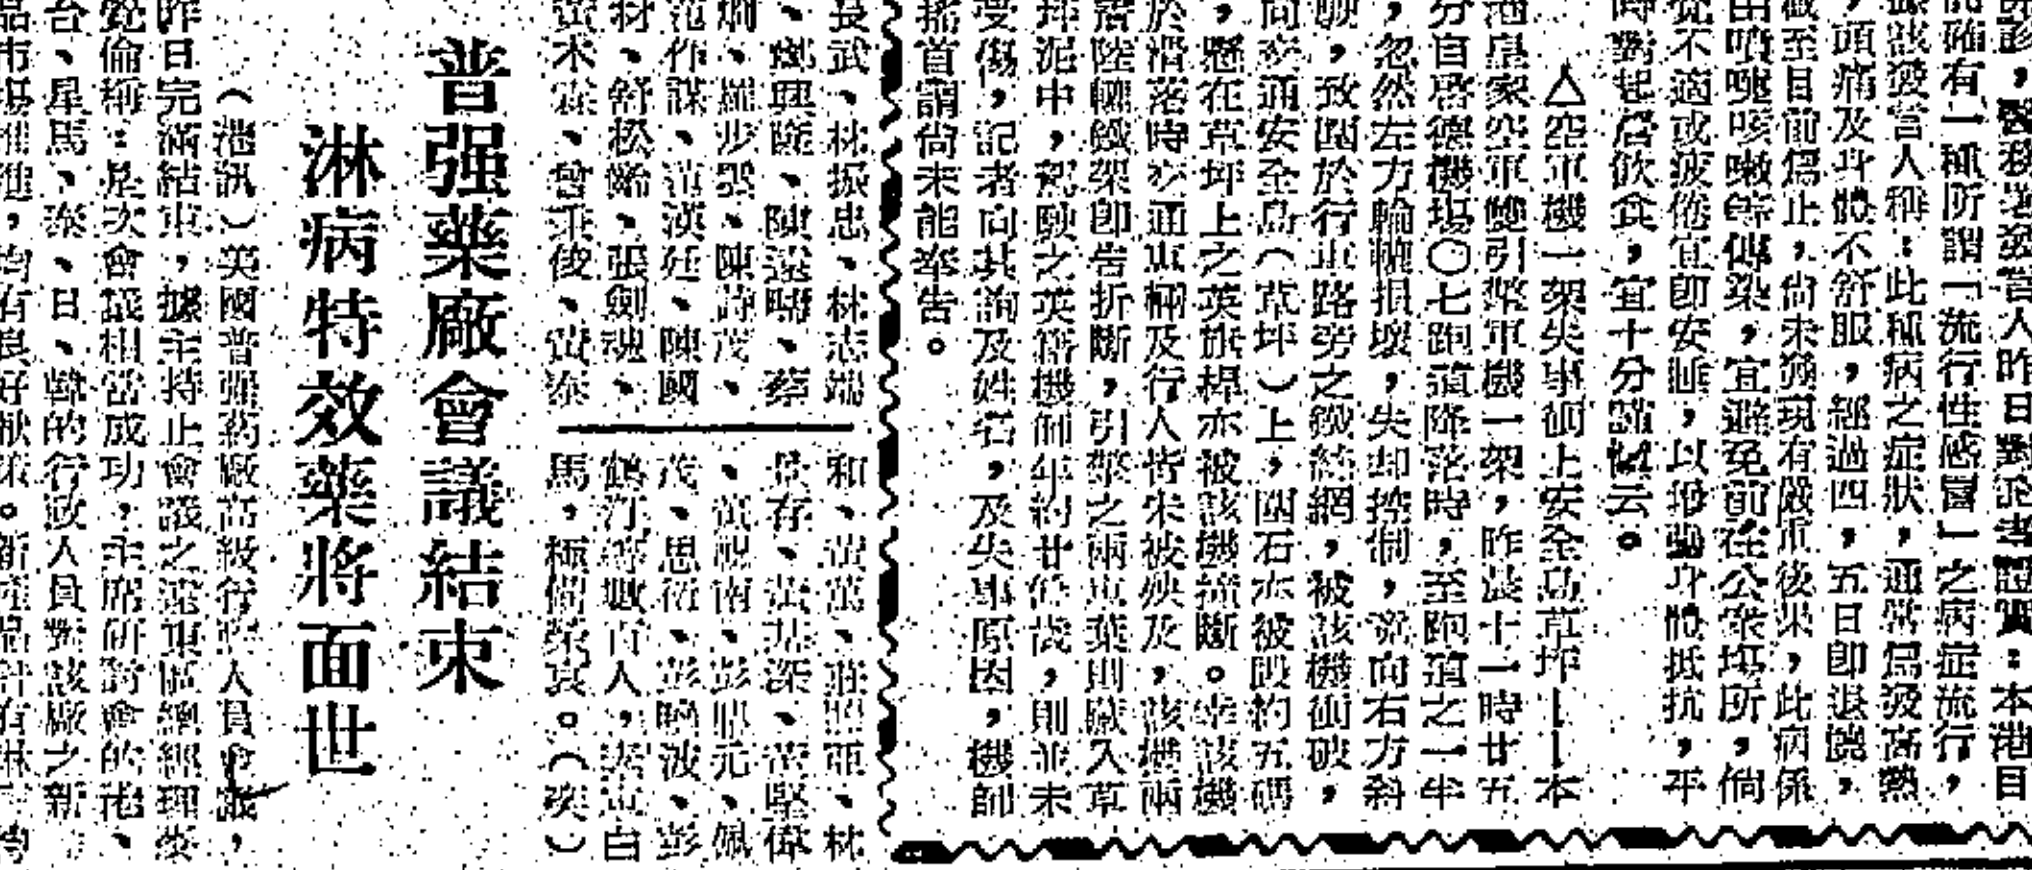 診，醫務署發言人昨日對記者證實：本港目
前確有一種所謂「流行性感冒」之病症流行，
據該發言人稱：此種病之症狀，通常為發高熱
，頭痛及身體不舒服，經過四，五日即退燒，
截至目前為止，尚未發現有嚴重後果，此病係
由噴嚏咳嗽時傳染，宜避免前往公衆場所，倘
覺不適或疲倦宜即安睡，以增強身體抵抗，平
時對起居飲食，宜十分謹慎云。
△空軍機一架失事衝上安全島草坪——本
港皇家空軍雙引擎軍機一架，昨晨十一時廿五
分自啓德機場〇七跑道降落時，至跑道之一半
，忽然左方輪轆損壞，失却控制，竟向右方斜
駛，致闖於行車路旁之鐵絲網，被該機衝破，
向交通安全島（草坪）上，圍石亦被毀約五碼
，懸在草坪上之英旗桿亦被該機撞斷。幸該機
於滑落時交通車輛及行人皆未被殃及，該機兩
着陸轆鐵架即告折斷，引擎之兩車葉則嵌入草
坪泥中，駕駛之英籍機師年約廿餘歲，則並未
受傷，記者向其詢及姓名，及失事原因，機師
搖首謂尚未能奉告。
長武、林振忠、林志端
、鄭興隆、陳遠晴、蔡
炯、羅步雲、陳詩茂、
范作謀、黃漢廷、陳國
材、舒松齡、張劍魂、
黃木霖、曾秉俊、黃泰
和、黃萬、莊照亞、林
景存、黃基深、黃堅偉
、黃觀南、彭鼎元、佩
茂、思衍、彭曉波、彭
馬，極備榮哀。（奕）
普强藥廠會議結束
淋病特效藥將面世
（港訊）美國普强葯廠高級行政人員會議，
昨日完滿結束，據主持止會議之遠東區總經理麥
克倫稱：是次會議相當成功，主席研討會的港、
台、星馬、泰、日、韓的行政人員對該廠之新
品市場推進，均有良好献策。新產品計有淋